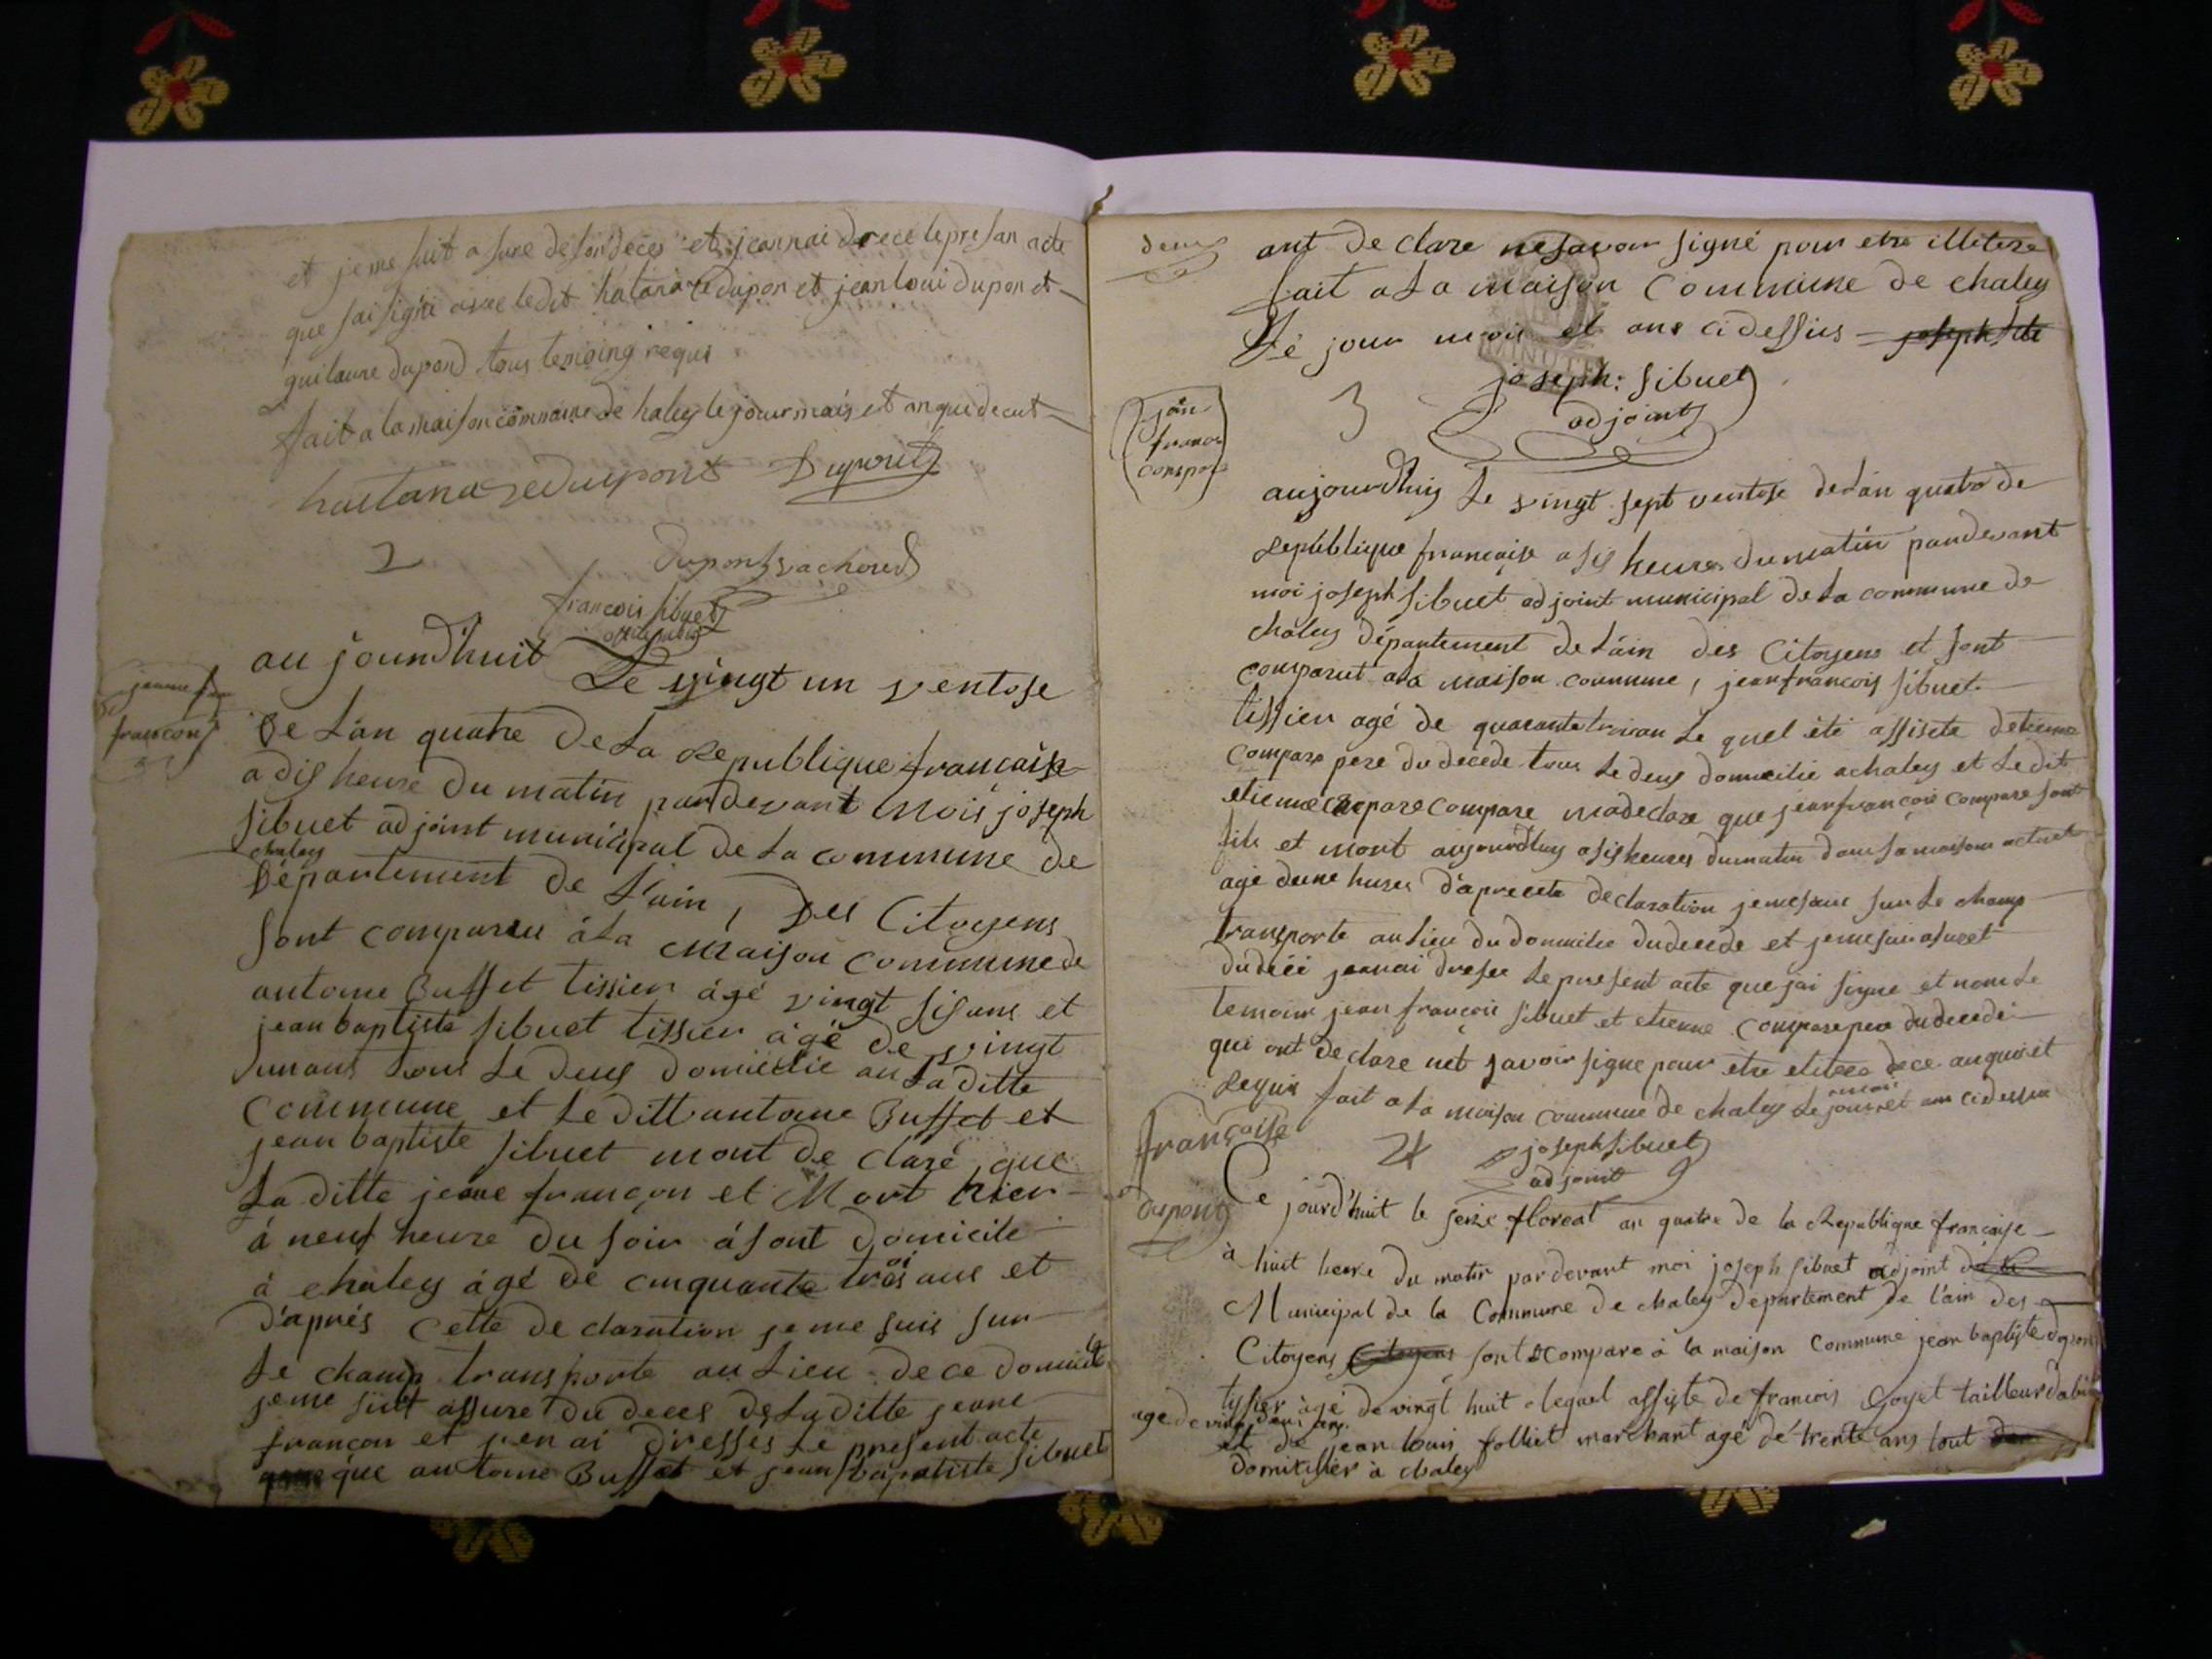 et jeme suit asure desondeces et jeannai drece lepresan acte
que jai signé avec ledit hatanaze dupon et jean loui dupon et
guilaume dupond tous temoing requi
fait a la maison commune de haley le jour mois et an que decut
hattanaze dupont Dupont
2 dupont vachoud
francois sibuet
aujourd'huit Le vingt un ventose
jeanne
francon
De Lan quatre De La Republique francaise
a dis heure Du matin pardevant Mois joseph
sibuet adjoint municipal de La commune de
chaley
Département de L'ain, Des Citoyens
sont comparu a La Maison commune de
antoine Buffet tissier agé vingt sis ans et
jean baptiste sibuet tissier agé de vingt
un ans tous Le deus Domicilie au La ditte
Commune et Le ditt antoine Buffet et
jean baptiste sibuet mont de claré que
La ditte jeane françon et Mort hier
á neuf heure du soir á sont Domicile
á chaley ágé de cinquante trois ans et
D'aprés cette de claration je me suis sur
Le champ transporte au Lieu de ce domicile
jeme suit assure du deces de La ditte jeane
françon et jen ai dresses Le present acte
que antoine Buffet et jean baptiste sibuet
deux
ant de clare ne savoir signé pour etre illetere
fait a La maison Commune de chaley
Le jour mois et ans ci dessus joseph sibu
joseph: sibuet
3 adjoint
jan
franco
conspar
aujourdhuy Le vingt sept ventose delan quatre de
Republique française a sis heures du matin pardevant
moi joseph sibuet adjoint municipal de La commune de
chaley département de Lain des Citoyens et sont
comparut ala maison commune, jean francois sibuet
tissier agé de quarante trois an Le quel été assiste detienne
compare pere du decede tous Le deus domicilie a chaley et Le dit
etienne compare madeclare que jean françois compare sont
fils et mort aujourdhuy a sis heures du matin dans sa maison
age deune hures d'aprecete declaration jemesuis sur Le champ
transporte au Lieu du domicilie du decede et jemesuis asuret
du décé jeannai dreser Le present acte que jai signe et nom Le
temoins jean françois sibuet et etienne compare pere du decede
qui ont declare net savoir signe pour etre de ce anquis et
Requis fait a La maison commune de chaley Le jour mois et an cidessus
4 joseph sibuet
adjoint
françoise
dupont
Ce jourd'huit le seize floreal an quatre de la Republique française
à huit heure du matin pardevant moi joseph sibuet adjoint
Municipal de la Commune de chaley departement de l'ain des
Citoyens Citoyens sont compare à la maison Commune jean baptiste
tissier àgé de vingt huit lequel assiste de francois Goyet tailleur
age de vingt deux ans
et de jean louis folliet marchant agé de trente ans tout
domicillier à chaley